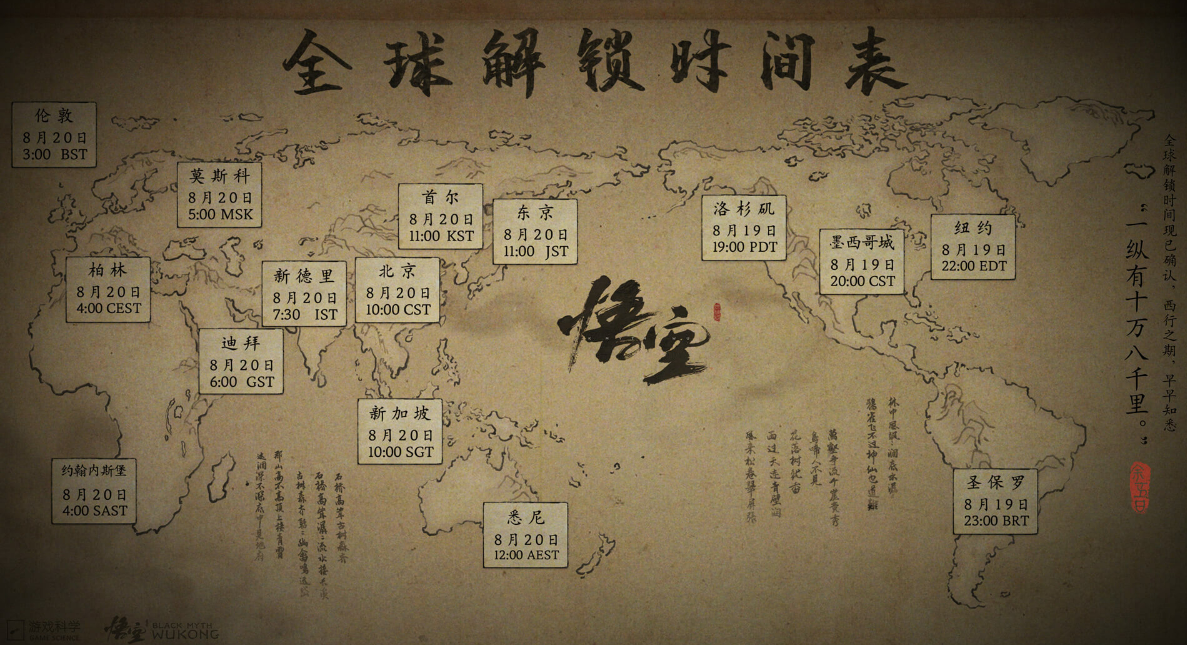 全球解锁时间表
伦敦
8月20日
3:00 BST
莫斯科
8月20日
5:00 MSK
首尔
8月20日
11:00 KST
东京
8月20日
11:00 JST
洛杉矶
8月19日
19:00 PDT
墨西哥城
8月19日
20:00 CST
纽约
8月19日
22:00 EDT
柏林
8月20日
4:00 CEST
新德里
8月20日
7:30 IST
北京
8月20日
10:00 CST
迪拜
8月20日
6:00 GST
新加坡
8月20日
10:00 SGT
约翰内斯堡
8月20日
4:00 SAST
悉尼
8月20日
12:00 AEST
圣保罗
8月19日
23:00 BRT
悟空
全球解锁时间现已确认，西行之期，早早知悉
“一纵有十万八千里。”
游戏科学
GAME SCIENCE
悟空
BLACK MYTH
WUKONG